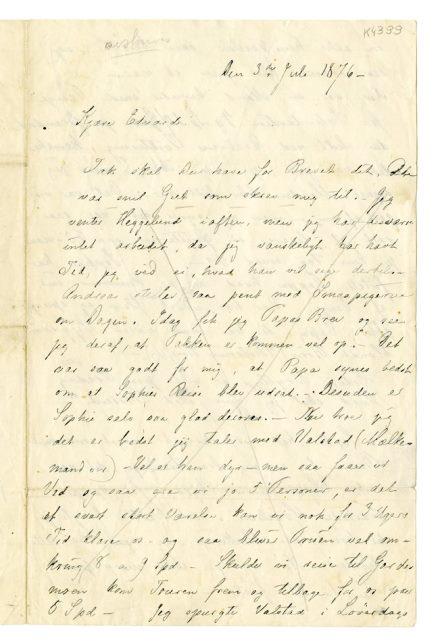 K4399
Den 3die Juli 1876 –
Kjære Edvard.
Tak skal Du have for Brevet dit, Det
var snil Gut som skrev mig til. Jeg
venter Heggelund iaften, men jeg har desværre
intet arbeidet, da jeg vanskeligt har havt
Tid, jeg véd ei, hvad han vil sige dertil.
Andrea steller saa pent med Smaapigerne
om Dagen. Idag fik jeg Papas Brev og seer
jeg deraf, at Pakken er kommen vel op. – Det
var saa godt for mig, at Papa synes bedst
om at Sophies Reise blev udsat. – Desuden er
Sophie selv saa glad derover. – Nu tror jeg
det er bedst jeg taler med Valstad (Mælke-
manden) – Vel er han dyr – men saa faaer vi
Ved og saa ere vi jo 5 Personer, er det
et svært stort Værelse kan vi nok for 3 Ugers
Tid klare os – og saa bliver Prisen vel om-
kring 8 a 9 Spd – Skulde vi reise til Garder-
moen kom Touren frem og tilbage for os paa
5 Spd – Jeg spurgte Valstad i Løverdags